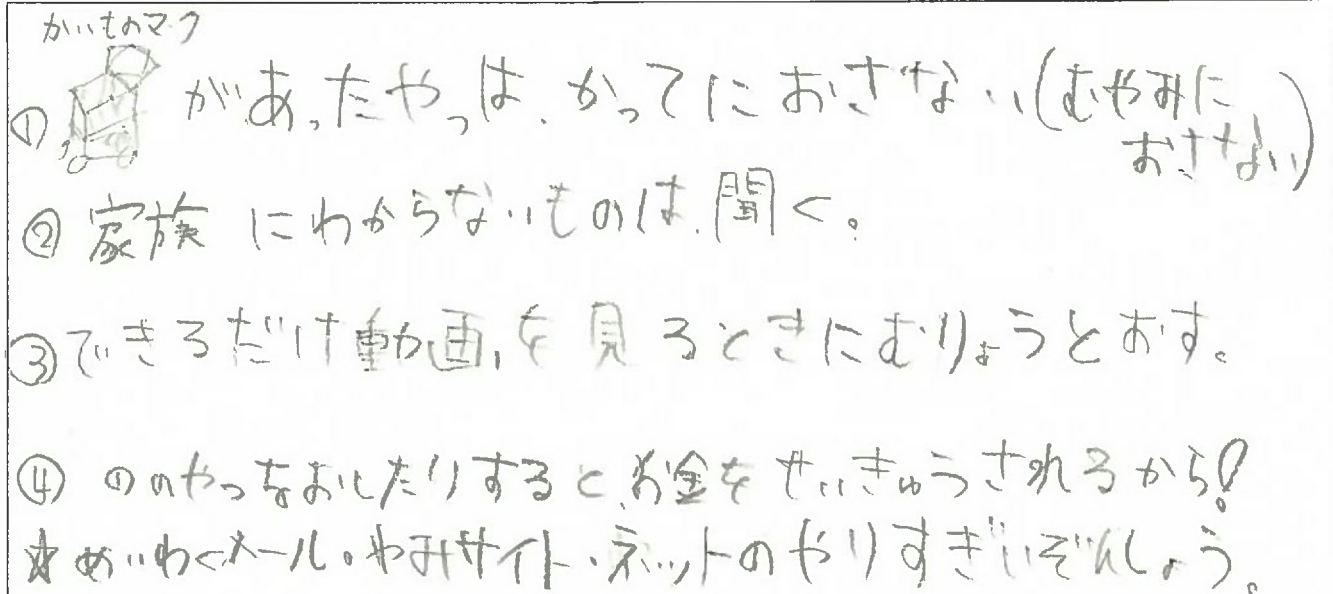 かいものマーク
① があったやつは、かってにおさない(むやみに
おさない)
② 家族にわからないものは、聞く。
③ できるだけ動画を見るときにむりょうとおす。
④ ①のやつをおしたりするとお金をせいきゅうされるから!
☆めいわくメール・やみサイト・ネットのやりすぎいぞんしょう。